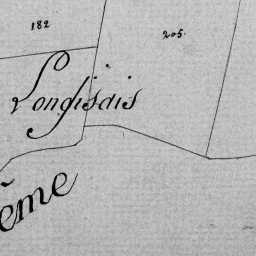 182
205.
Longisais
ème